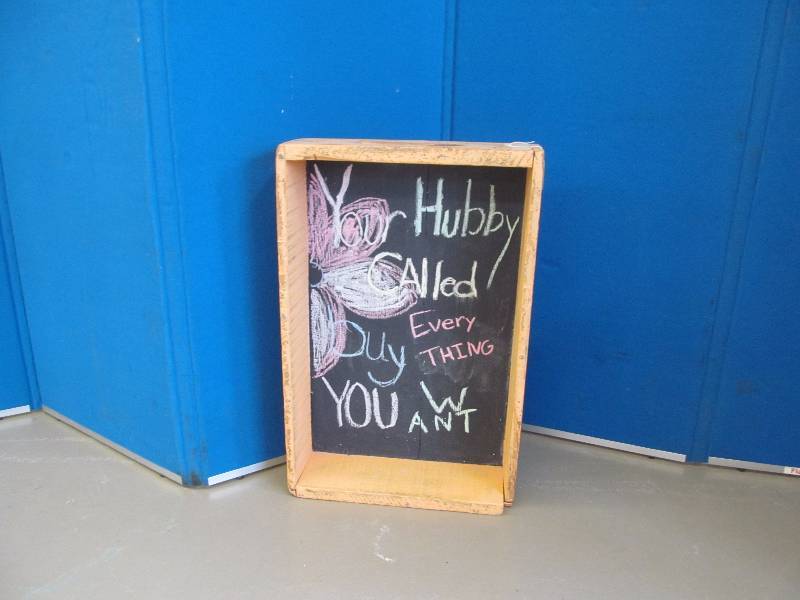 Your Hubby
CAlled
Buy Every
THING
YOU WANT